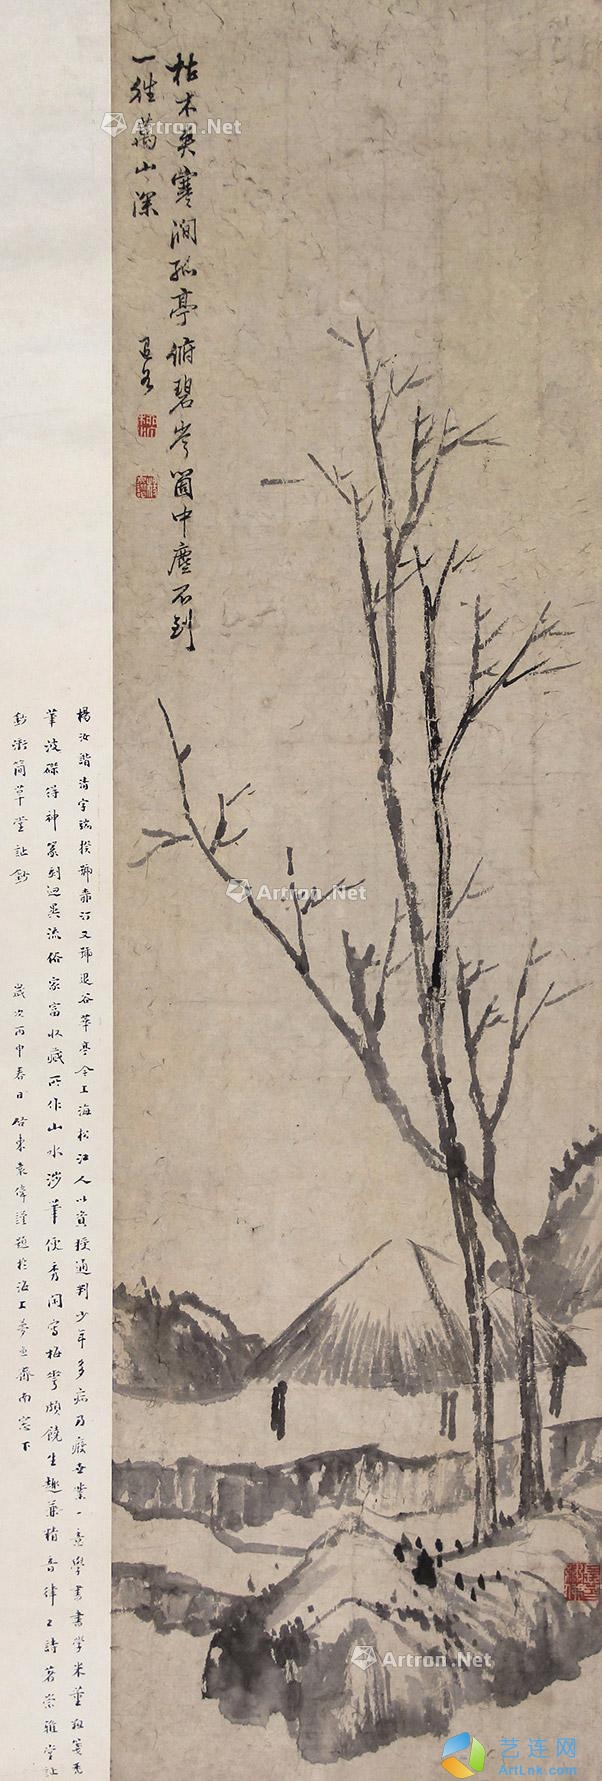 枯木奧寒澗孤亭俯碧岑箇中塵不到
一往萬山深
楊汝諧清字端揆號赤汀又號退谷華亭今上海松江人以資授通判少年多病乃廢世業一意學書書學米董數筆老
筆波磔得神篆刻迥異流俗家富收藏所作山水涉筆便秀間寫梅花頗饒生趣兼精音律工詩著崇雅堂
歲次丙申春日 啟東袁偉謹題於海上
Artron.Net
Artron.Net
Artron.Net
艺连网
ArtLnk.com